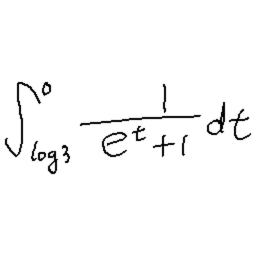 \int_{\log 3}^{0} \frac{1}{e^t+1} dt